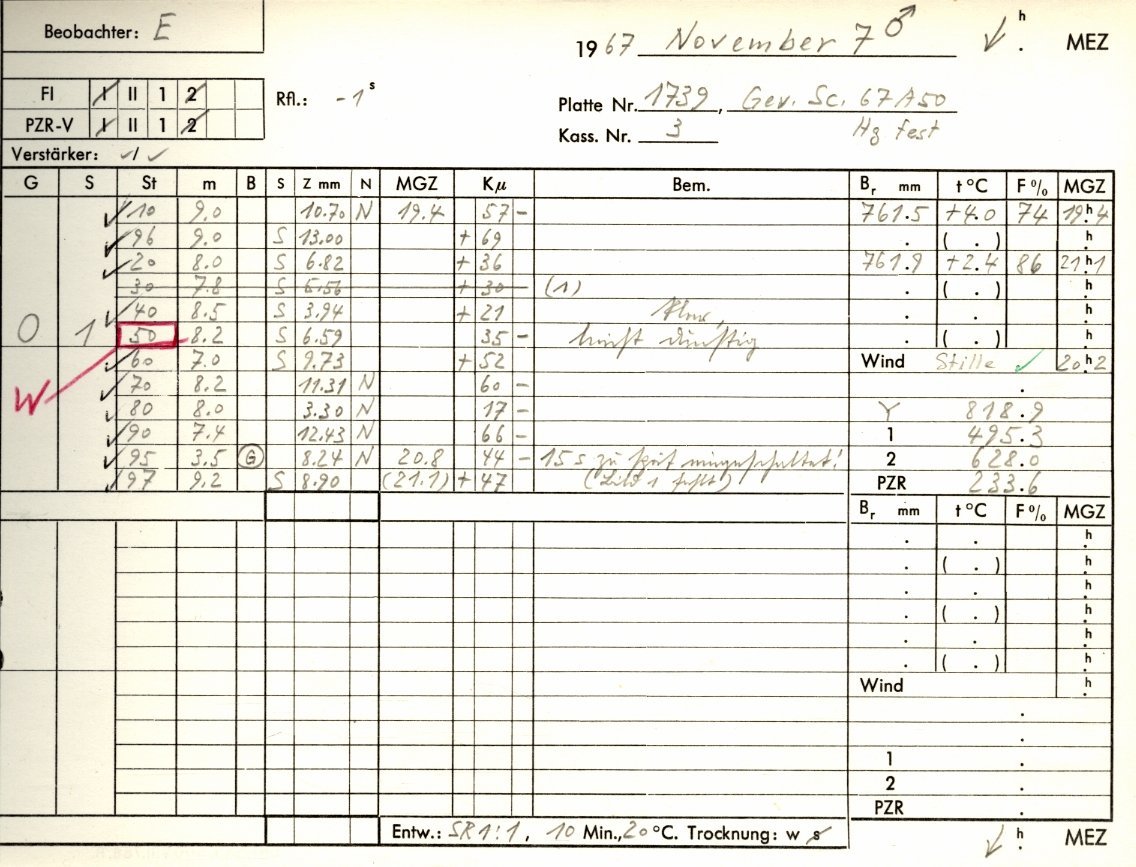 Beobachter: E
1967 November 7 ♂ h . MEZ
FI I II 1 2 Rfl.: -1 s
Platte Nr. 1739, Gev. Sc. 67 A50
PZR-V I II 1 2
Kass. Nr. 3 Hg fest
Verstärker: ✓/✓
G S St m B S Z mm N MGZ Kμ Bem. Br mm t °C F % MGZ
✓10 9.0 10.70 N 19.4 57 - 761.5 +4.0 74 19h.4
✓96 9.0 S 13.00 + 69 . ( . ) h.
✓20 8.0 S 6.82 + 36 761.9 +2.4 86 21h.1
30 7.8 S 6.56 + 30 (1) . ( . ) h.
✓40 8.5 S 3.94 + 21 . . h.
0 1 50 8.2 S 6.59 35 - . ( . ) h.
✓60 7.0 S 9.73 + 52 Wind Stille ✓ 20h.2
W ✓70 8.2 11.31 N 60 - .
✓80 8.0 3.30 N 17 - 818.9
✓90 7.4 12.43 N 66 - 1 495.3
✓95 3.5 G 8.24 N 20.8 44 - 15 s zu spät eingeschaltet! 2 628.0
✓97 9.2 S 8.90 (21.1) + 47 PZR 233.6
Br mm t °C F % MGZ
. . h.
. ( . ) h.
. . h.
. ( . ) h.
. . h.
. ( . ) h.
Wind h.
.
.
1 .
2 .
PZR .
Entw.: SR 1:1, 10 Min., 20 °C. Trocknung: w s h . MEZ